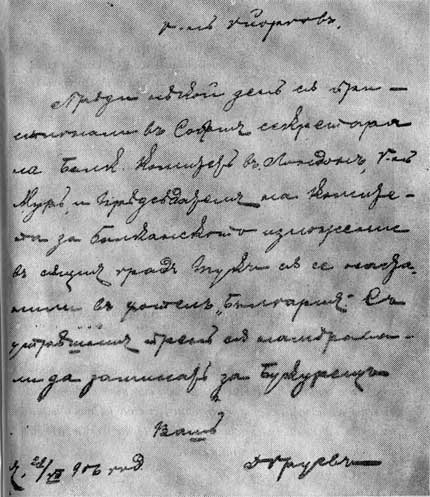 Г-нъ Гйорговъ,
Прѣди нѣкой день сѫ при-
стигнали въ София секретаря
на Балк. Комитетъ въ Лондонъ, Г-нъ
Муръ, и прѣдседателя на Комите-
та за Балканското изложение
въ сѫщия градъ сѫ се наста-
нили въ хотелъ „България“. Съ
утрѣшния тренъ сѫ намѣрили
да заминатъ за Букурещъ
Вашъ
906 год.